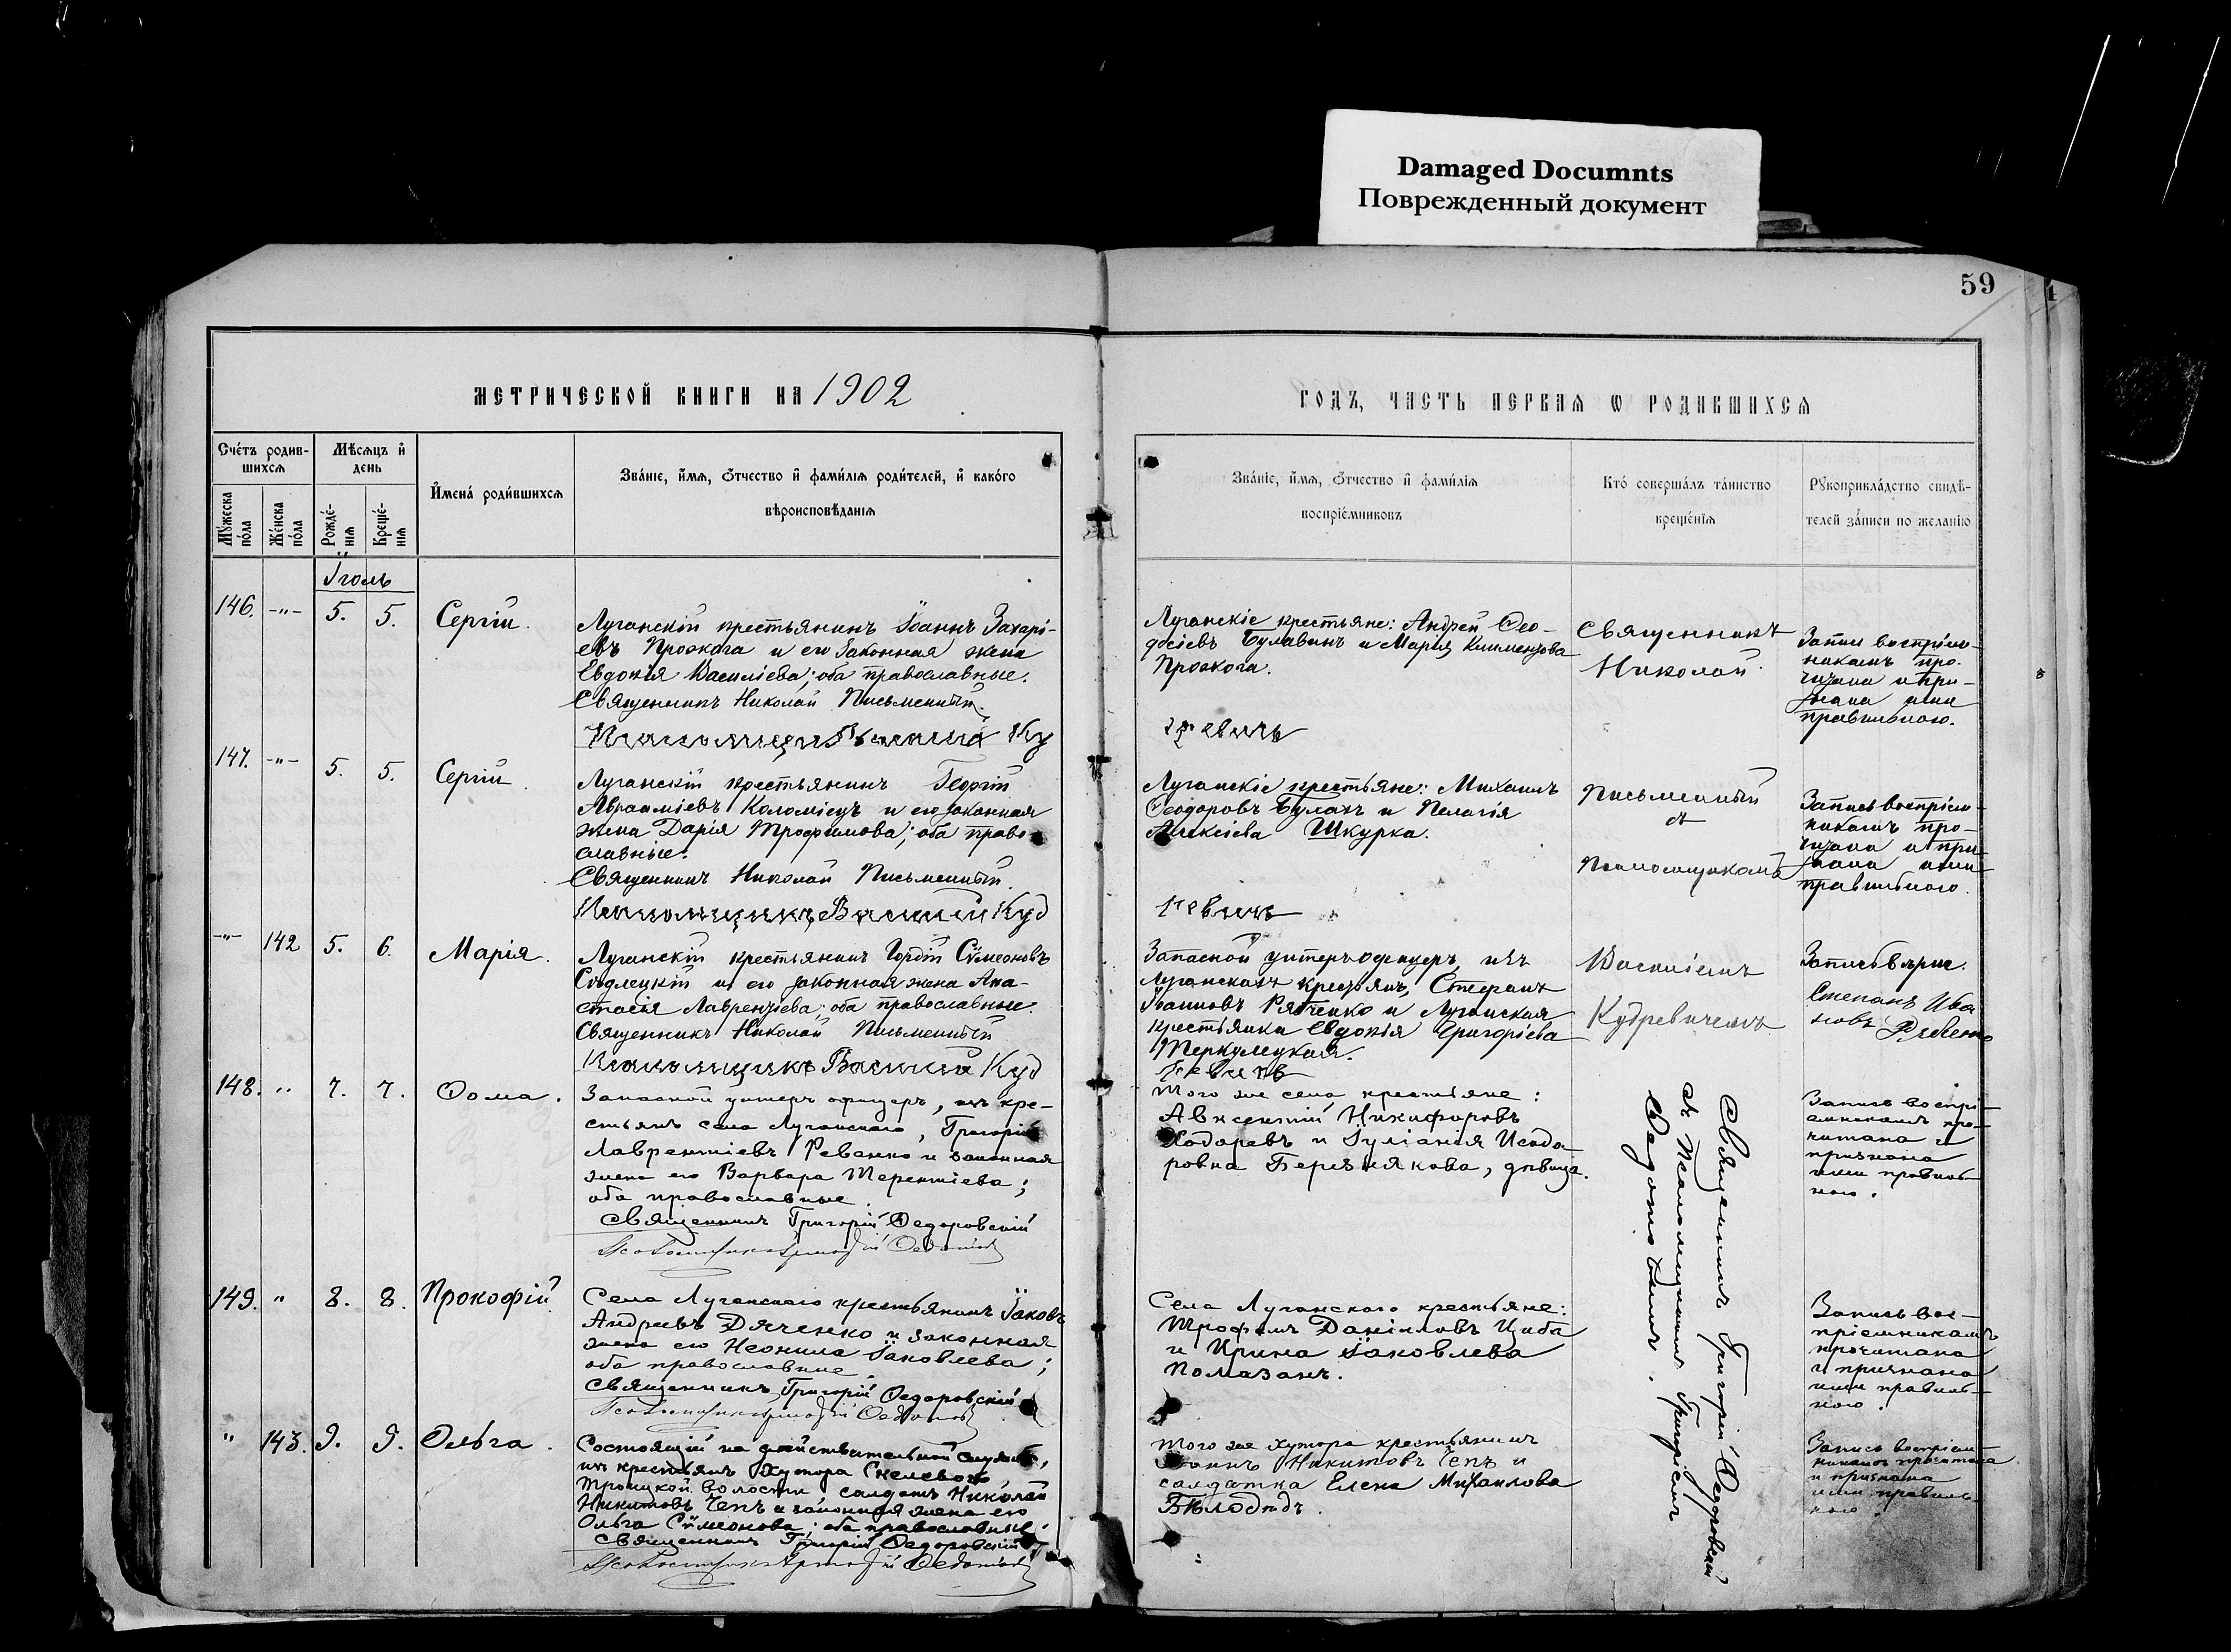 Damaged Documnts
Поврежденный документ
59
МЕТРИЧЕСКОЙ КНИГИ НА 1902
ГОДЪ, ЧАСТЬ ПЕРВАЯ Ѡ РОДИВШИХСЯ
Счетъ родив-
шихся
Мѣсяцъ и
день
Мужеска
пола
Женска
пола
Рожде-
нія
Креще-
нія
Имена родившихся
Званіе, имя, отчество и фамилія родителей, и какого
вѣроисповѣданія
Званіе, имя, отчество и фамилія
воспріемниковъ
Кто совершалъ таинство
крещенія
Рукоприкладство свидѣ-
телей записи по желанію
Іюль
146. -"- 5. 5. Сергій.
Луганскій крестьянинъ Іоаннъ Захарі-
евъ Проскога и его законная жена
Евдокія Василіева; оба православные.
Священникъ Николай Письменный.
Луганскіе крестьяне: Андрей Ѳео-
досіевъ Булавинъ и Марія Климентова
Проскога.
Священникъ
Николай
Запись воспріем-
никамъ про-
читана и при-
знана ими
правильною.
147. -"- 5. 5. Сергій.
Луганскій крестьянинъ Георгій
Авраамієвъ Коломіецъ и его законная
жена Дарія Трофимова; оба право-
славные.
Священникъ Николай Письменный.
Псаломщикъ Василій Куд
Луганскіе крестьяне: Михаилъ
Ѳеодоровъ Булахъ и Пелагія
Алексіева Шкурка.
ревичъ
Письменный
съ
Псаломщикомъ
Запись воспріем-
никамъ про-
читана и при-
знана ими
правильною.
-"- 142 5. 6. Марія.
Луганскій крестьянинъ Гордій Сѵмеоновъ
Сѣдлецкій и его законная жена Ана-
стасія Лаврентіева; оба православные.
Священникъ Николай Письменный
Псаломщикъ Василій Куд
Запасной унтеръ-офицеръ, изъ
Луганскихъ крестьянъ, Стефанъ
Іоанновъ Рябченко и Луганская
крестьянка Евдокія Григоріева
ревичъ
Василіемъ
Кудревичемъ
Запись вѣрна.
Степанъ Ива
новъ
148. " 7. 7. Ѳома.
Запасной унтеръ офицеръ, изъ кре-
стьянъ села Луганскаго, Григорій
Лаврентіевъ Ревенко и законная
жена его Варвара Терентіева;
оба православные.
Священникъ Григорій Ѳедоровскій
Того же села крестьяне:
Авксентій Никифоровъ
Ходаревъ и Іуліанія Исидо-
ровна Березнякова, дѣвица.
Священникъ Григорій Ѳедоровскій
съ Псаломщикомъ Григоріемъ
Ѳедотовымъ.
Запись воспрі-
емникамъ про-
читана и
признана
ими правиль-
ною.
149. " 8. 8. Прокофій.
Села Луганскаго крестьянинъ Іаковъ
Андреевъ Дяченко и законная
жена его Неонила Іаковлева;
оба православные.
Священникъ Григорій Ѳедоровскій
Села Луганскаго крестьяне:
Трофимъ Даніиловъ Циба
и Ирина Іаковлева
Помазанъ.
Запись вос-
пріемникамъ
прочитана
и признана
ими правиль-
ною.
" 143. 9. 9. Ольга.
Состоящій на дѣйствительной службѣ,
изъ крестьянъ Хутора
Троицкой волости солдатъ Николай
Никитовъ Чепъ и законная жена его
Ольга Сѵмеонова; оба православные.
Священникъ Григорій Ѳедоровскій
Того же хутора крестьянинъ
Іоаннъ Никитовъ Чепъ и
солдатка Елена Михаилова
Бѣлодѣдъ.
Запись воспріем-
никамъ прочитана
и признана
ими правиль-
ною.